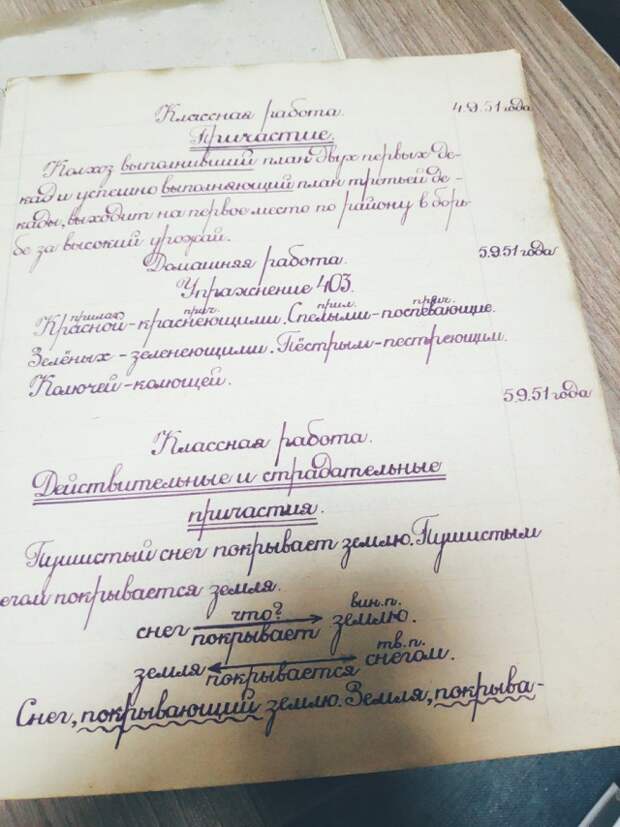 Классная работа. 4.9.51 года
Причастие.
Колхоз выполнивший план двух первых де-
кад и успешно выполняющий план третьей де-
кады, выходит на первое место по району в борь-
бе за высокий урожай.
Домашняя работа. 5.9.51 года
Упражнение 403.
прилаг. прич. прил. прич.
Красной-краснеющими. Спелыми-поспевающие.
Зелёных-зеленеющими. Пёстрым-пестреющим.
Колючей-колющей.
5.9.51 года
Классная работа.
Действительные и страдательные
причастия.
Пушистый снег покрывает землю. Пушистым
снегом покрывается земля.
что? вин.п.
снег покрывает землю.
тв.п.
земля покрывается снегом.
Снег, покрывающий землю. Земля, покрыва-